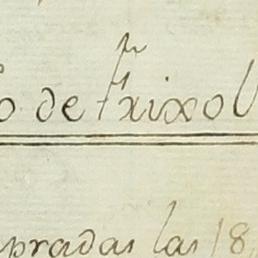 o de frixol
pradas las 18